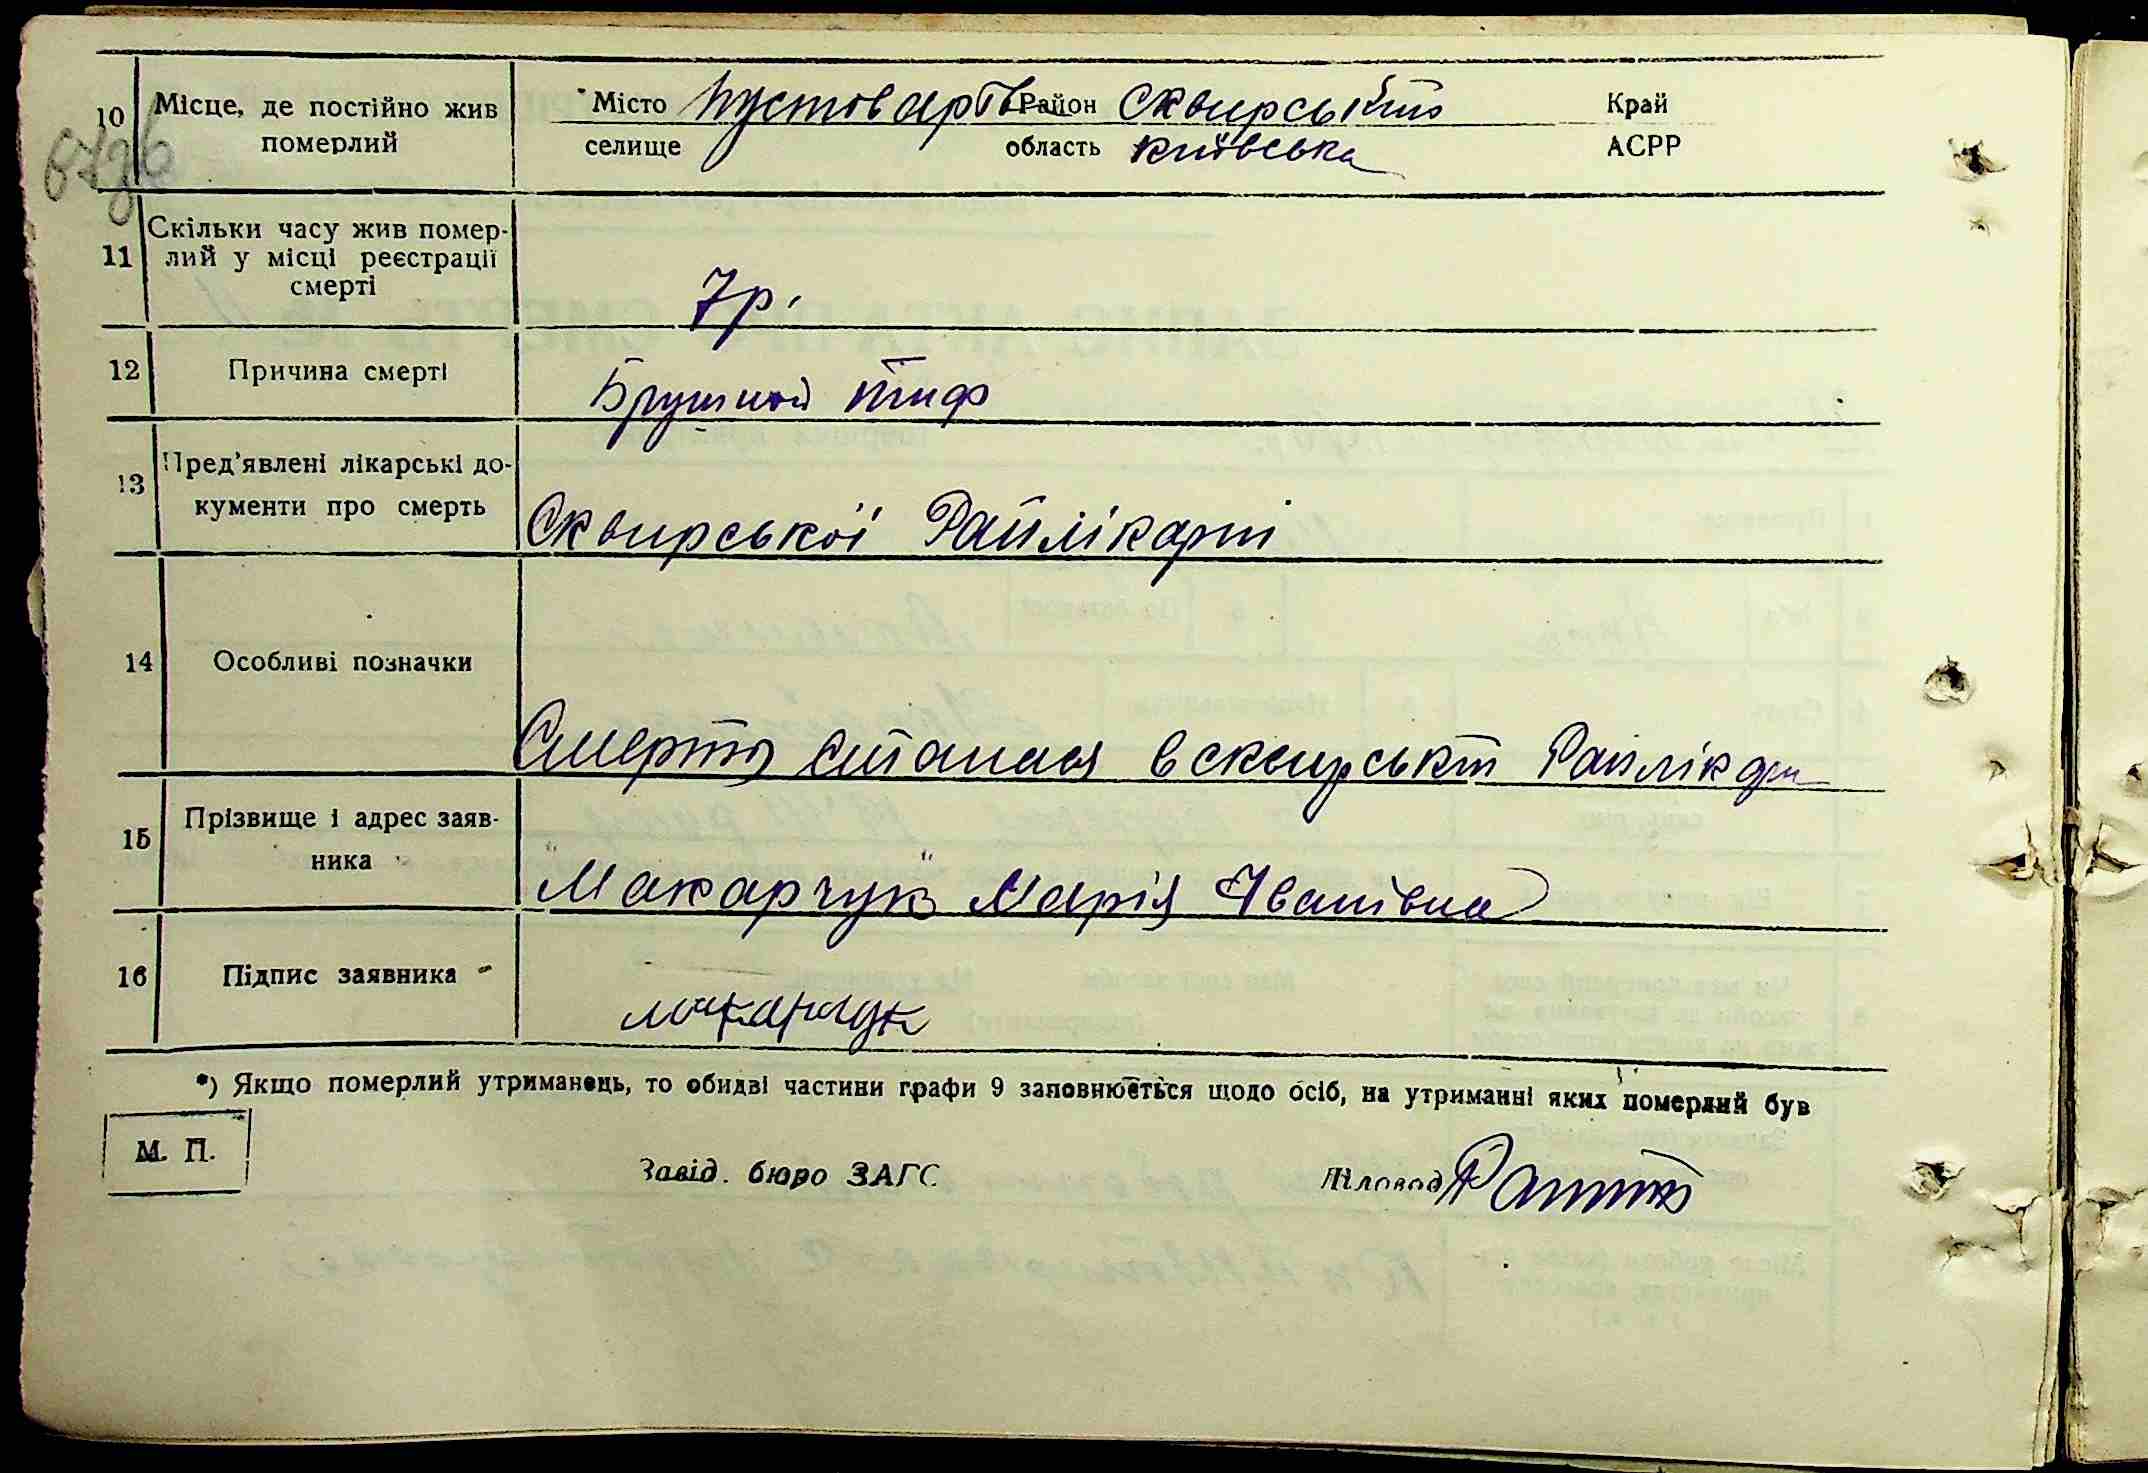 10 Місце, де постійно жив Місто Пустоварів Район Сквирський Край
померлий селище область Київська АСРР
Скільки часу жив помер-
11 лий у місці реєстрації
смерті 7 р.
12 Причина смерті Брушной тиф
Пред’явлені лікарські до-
13 кументи про смерть Сквирської Райлікарні
14 Особливі позначки
Смерть сталася в сквирській Райлікарні
Прізвище і адрес заяв-
15 ника "Макарчук" Марія Іванівна
16 Підпис заявника Макарчук
*) Якщо померлий утриманець, то обидві частини графи 9 заповнюється щодо осіб, на утриманні яких померлий був
М. П.
Завід. бюро ЗАГС Діловод